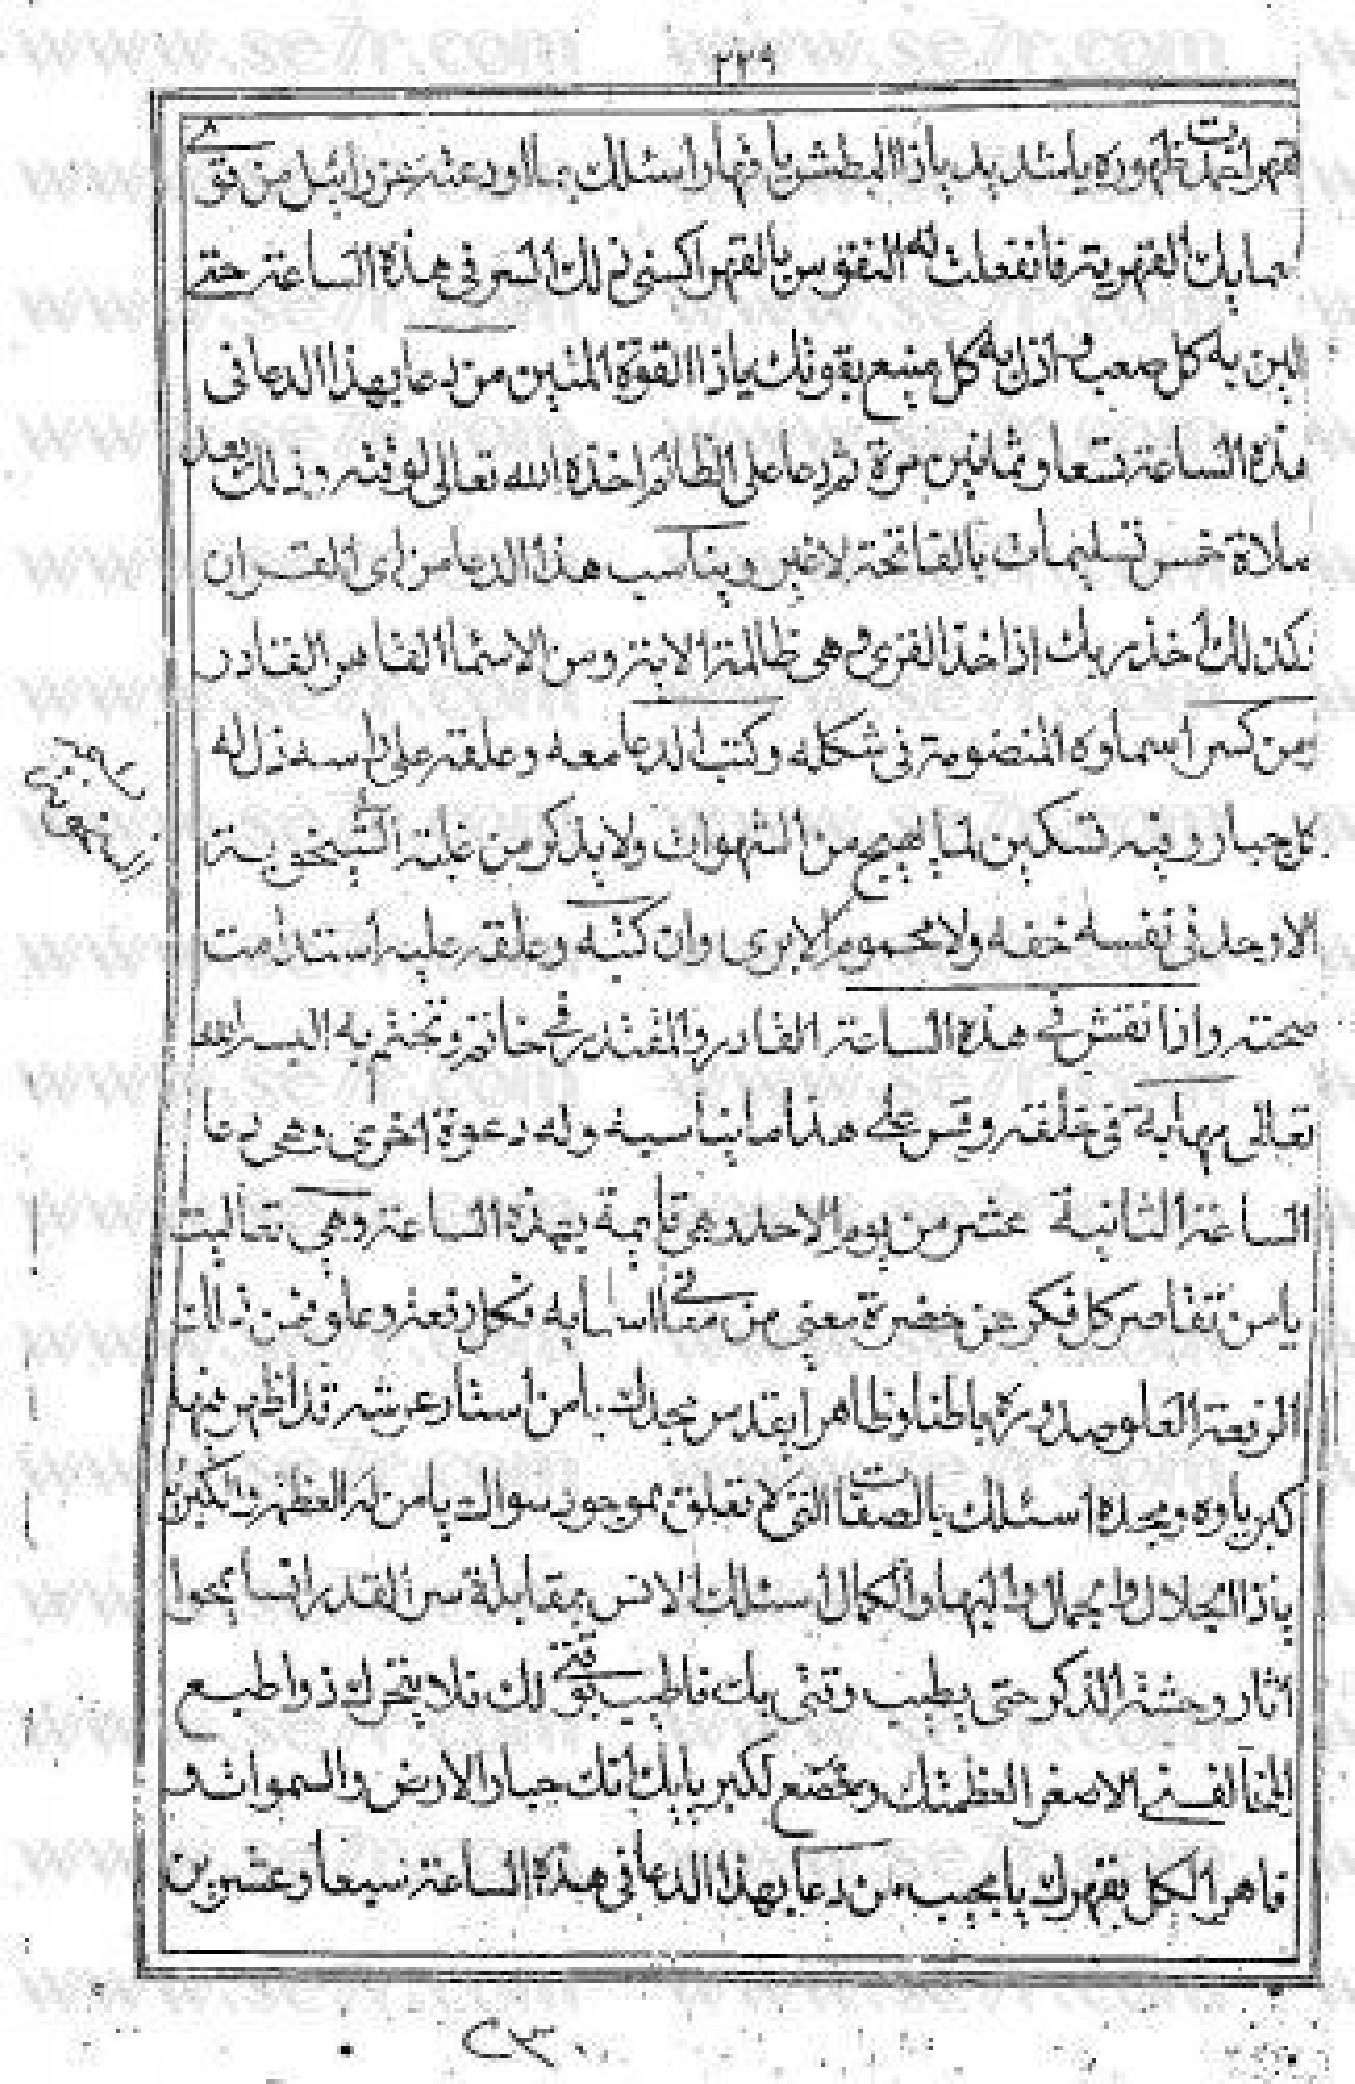 www.se7r.com www.se7r.com
٢٢٩
ظهوره ياشديد ياذا البطش يا قهار اسئلك بما اودعته عزرائيل من قوى
القهرية فانفعلت له النفوس بالقهر اكسنى ذلك السر فى هذه الساعة حتى
الين به كل صعب واذل به كل منيع بقوتك ياذا القوة المتين من دعا بهذا الدعا فى
هذه الساعة تسعا وثمانين مرة ثم دعا على الظالم اخذه الله تعالى لوقته وذلك بعد
صلاة خمس تسليمات بالفاتحة لاغير ويناسب هذا الدعا من اى القران
وكذلك اخذ ربك اذا اخذ القرى وهى ظالمة الاية ومن الاسما القاهر القادر
ومن كسر اسماوه المنصومة فى شكله وكتب الدعا معه وعلقه على راسه ذل له
كل جبار وفيه تسكين لما يهيج من الشهوات ولا يذكر من غلبته الشهوة
الا وجد فى نفسه خفه ولا محموم الا برى وان كتبه وعلقه عليه استدامت
صحته واذا نقش فى هذه الساعة القادر والمقتدر فى خاتم وتختم به البسه الله
تعالى مهابة فى خلقه وقس على هذا ما يناسبه وله دعوة اخرى وهى دعا
الساعة الثانية عشر من يوم الاحد وهى قايمة بهذه الساعة وهى
يا من تقاصر كل فكر عن حضرة معنى من اسمايه فكل رفعة وعلو فمن ذلك
الرفعة العلو صدوره باطنا وظاهرا بقدس مجدك يا من استار عرشه قد اظهر منها
كبرياوه ومجده اسئلك بالصفات التى لا تعلق بموجود سواك يا من له العظمة والكبريا
ياذا الجلال والجمال والبها والكمال اسئلك الانس بمقابلة سر القدر انسا يمحوا
اثار وحشة الذكر حتى يطيب وقتى بك فاطيب بوقتى لك فلا يتحرك ذو طبع
المخالفتى الا صغر لعظمتك وخضع لكبريايك انك جبار الارض والسموات و
قاهر الكل بقهرك يا مجيب من دعا بهذا الدعا فى هذه الساعة سبعا وعشرين
٢٣٠